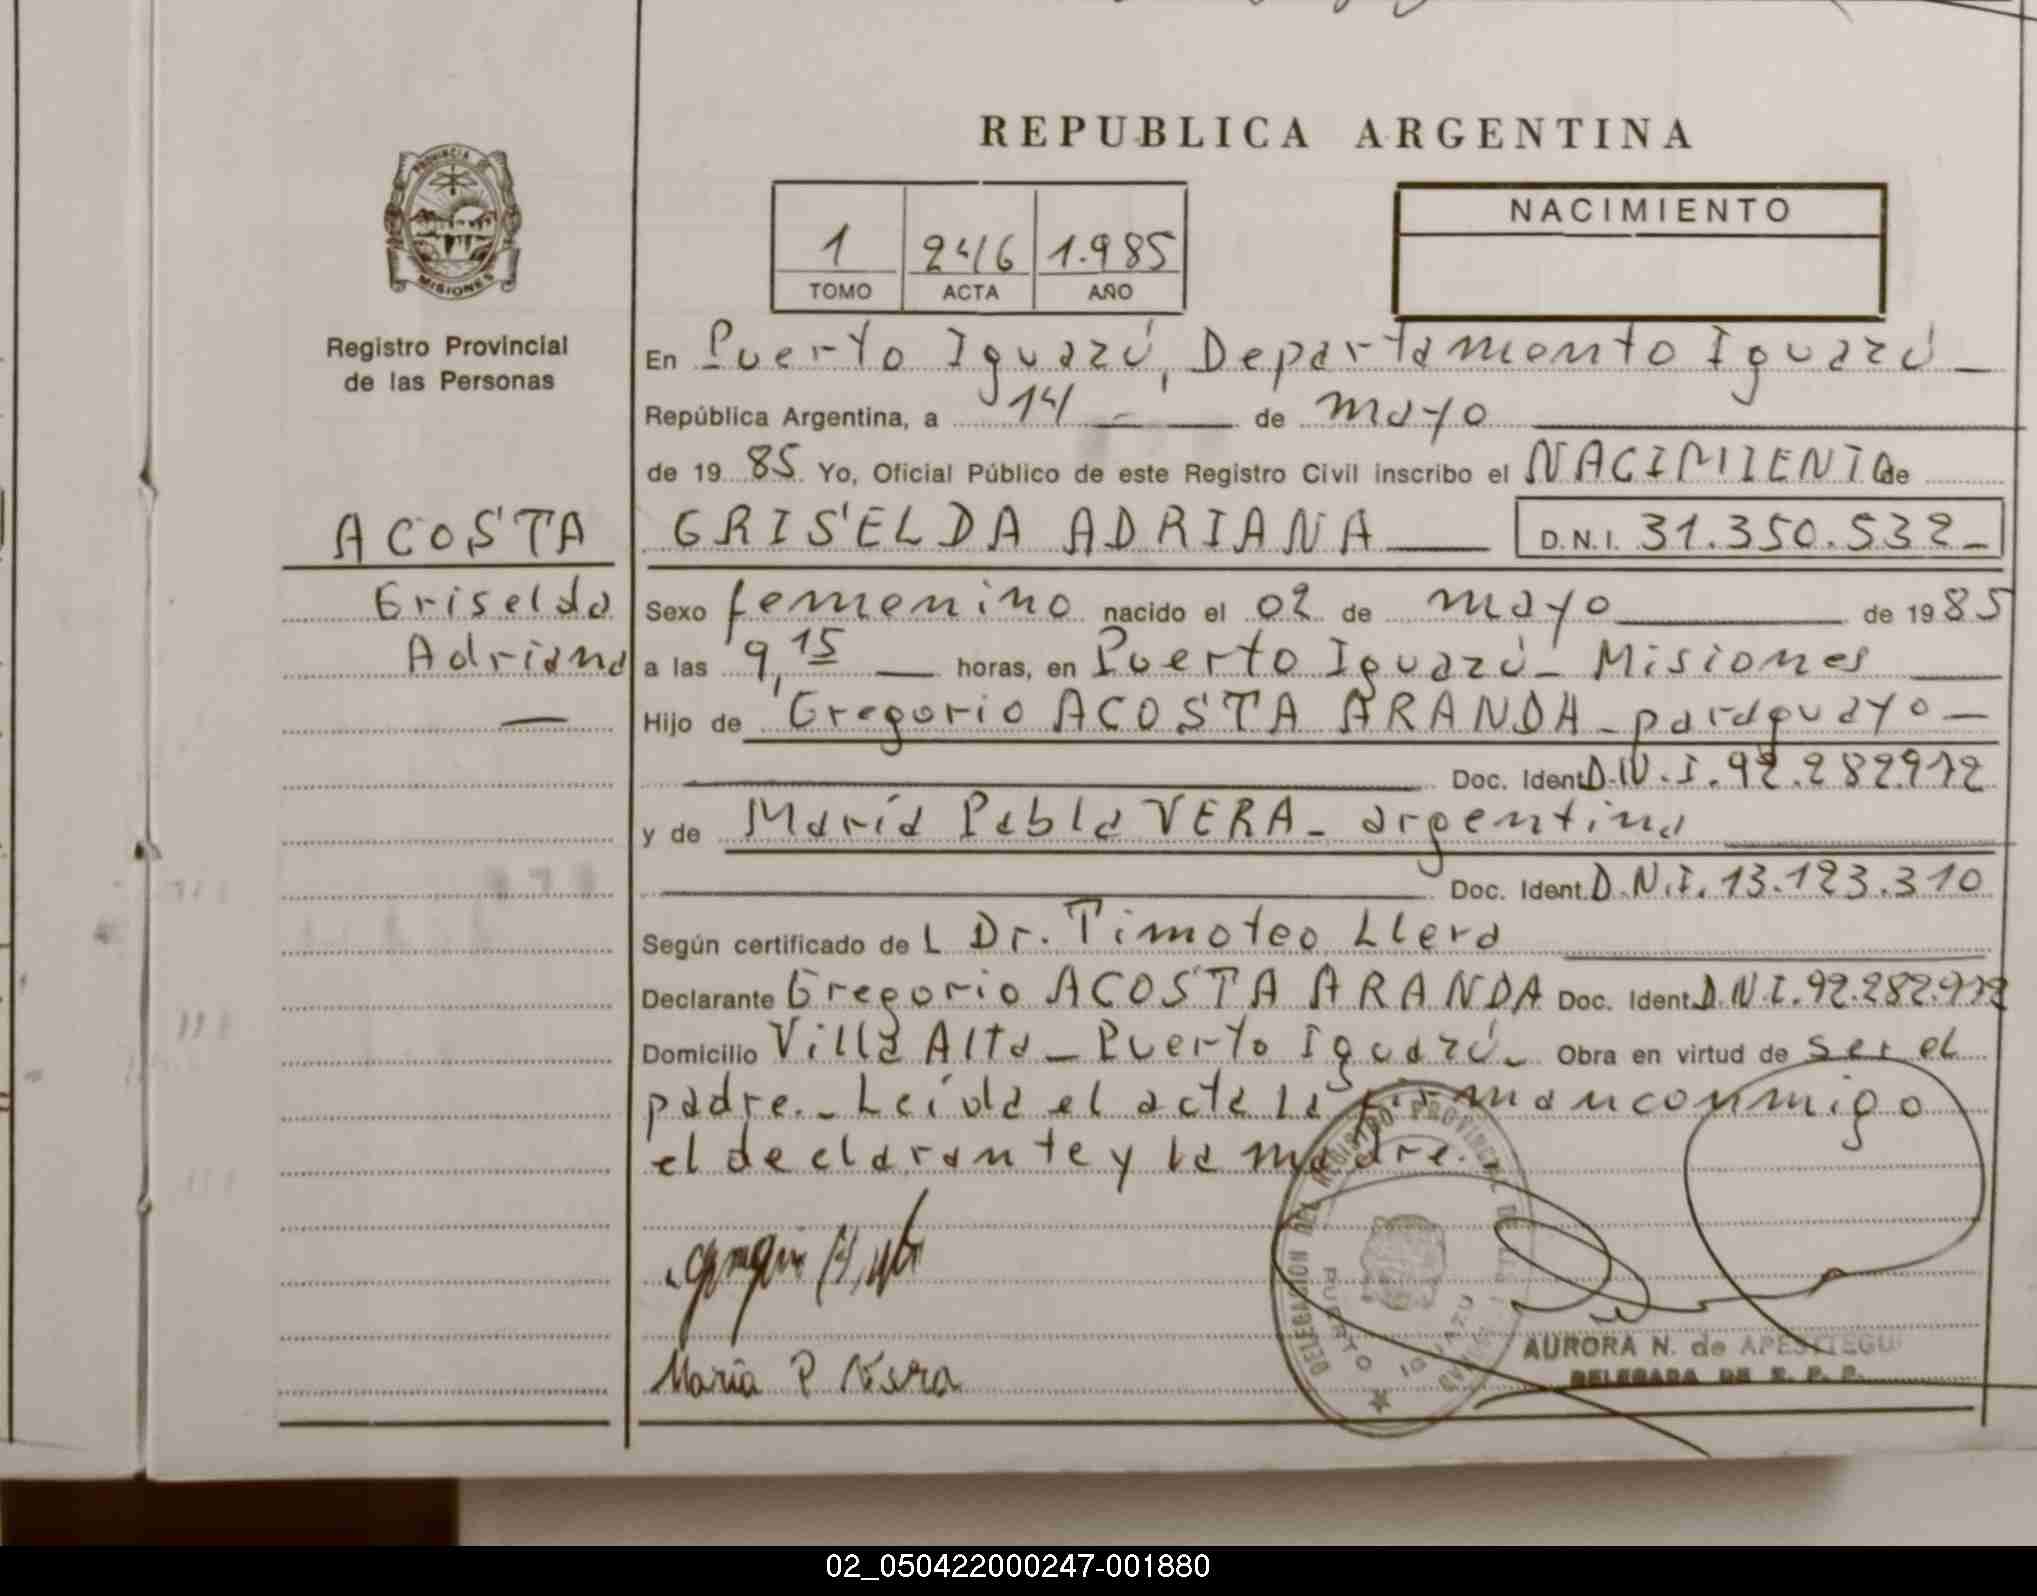 REPUBLICA ARGENTINA
PROVINCIA DE
MISIONES
Registro Provincial
de las Personas
1 246 1.985
TOMO ACTA AÑO
NACIMIENTO
En Puerto Iguazú, Departamento Iguazú _
República Argentina, a 14 de mayo
de 19 85 Yo, Oficial Público de este Registro Civil inscribo el NACIMIENTO de
ACOSTA
Griselda
Adriana
GRISELDA ADRIANA D.N.I. 31.350.532_
Sexo femenino nacido el 02 de mayo de 19 85
a las 9,15 horas, en Puerto Iguazú_ Misiones
Hijo de Gregorio ACOSTA ARANDA_ paraguayo _
Doc. Ident. D.N.I. 92.282.912
y de María Pabla VERA_ argentina
Doc. Ident. D.N.I. 13.123.310
Según certificado de L Dr. Timoteo Llera
Declarante Gregorio ACOSTA ARANDA Doc. Ident. D.N.I. 92.282.912
Domicilio Villa Alta _ Puerto Iguazú_ Obra en virtud de ser el
padre._ Leída el acta la firman conmigo
el declarante y la madre._
DELEGACION DEL REGISTRO PROVINCIAL DE
PUERTO IGUAZU
Maria P Vera
AURORA N. de APESTEGUI
DELEGADA DE R. P. P.
02_050422000247-001880